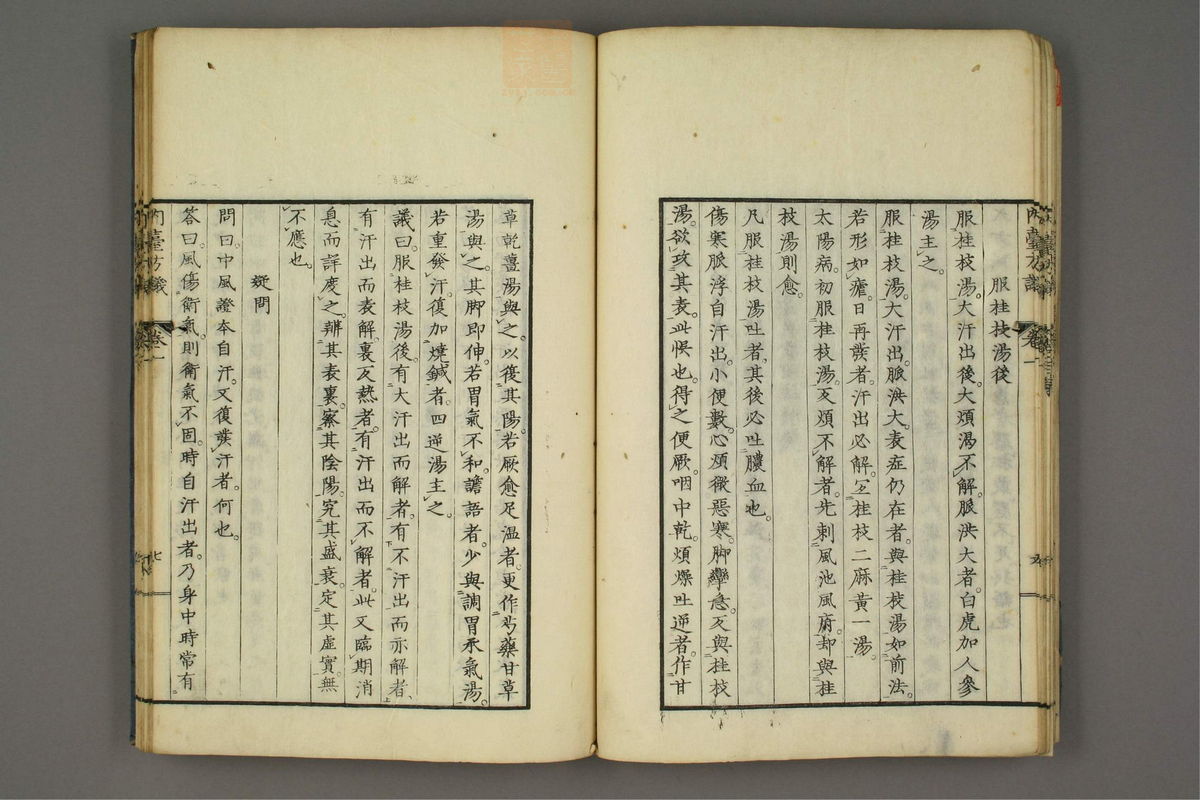 服桂枝湯後
服桂枝湯。大汗出後。大煩渴不解。脈洪大者。白虎加人參
湯主之。
服桂枝湯。大汗出。脈洪大。表症仍在者。與桂枝湯如前法。
若形如瘧。日再發者。汗出必解。宜桂枝二麻黃一湯。
太陽病。初服桂枝湯。反煩不解者。先刺風池風府。却與桂
枝湯則愈。
凡服桂枝湯吐者。其後必吐膿血也。
傷寒脈浮自汗出。小便數。心煩微惡寒。脚攣急。反與桂枝
湯。欲攻其表。此悞也。得之便厥。咽中乾。煩燥吐逆者。作甘
草乾薑湯與之。以復其陽。若厥愈足溫者。更作芍藥甘草
湯與之。其脚即伸。若胃氣不和譫語者。少與調胃承氣湯。
若重發汗。復加燒鍼者。四逆湯主之。
議曰。服桂枝湯後。有大汗出而解者。有不汗出而亦解者、
有汗出而表解。裏反熱者。有汗出而不解者。此又臨期消
息而詳度之。辨其表裏。察其陰陽。究其盛衰。定其虛實。無
不應也。
疑問
問曰。中風證本自汗。又復發汗者。何也。
答曰。風傷衛氣。則衛氣不固。時自汗出者。乃身中時常有
內臺方議
卷一
七